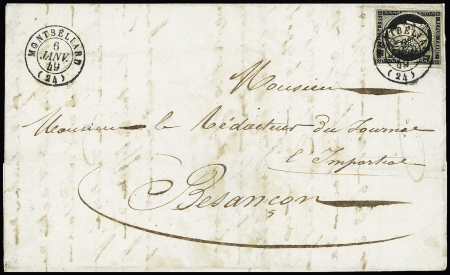 MONTBÉLIARD
6
JANV.
49
(24)
MONTBÉLIARD
49
(24)
Monsieur
Monsieur le Rédacteur du Journal
l'Impartial
Besançon